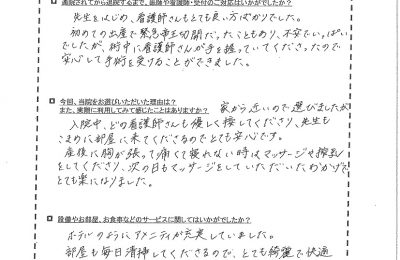 ■通院されてから退院するまで、医師や看護師・受付のご対応はいかがでしたか?
先生をはじめ、看護師さんもとても良い方ばかりでした。
初めての出産で緊急帝王切開だったこともあり、不安でいっぱい
でしたが、術中に看護師さんが手を握っていてくださったので
安心して手術を受けることができました。
■今回、当院をお選びいただいた理由は?
また、実際に利用してみて感じたことはありますか? 家から近いので選びましたが
入院中、どの看護師さんも優しく接してくださり、先生も
こまめに部屋に来てくださるのでとても安心です。
産後に胸が張って痛くて寝れない時はマッサージや搾乳
をしてくださり、次の日もマッサージをしていただいたおかげで
とても楽になりました。
■設備やお部屋、お食事などのサービスに関してはいかがでしたか?
ホテルのようにアメニティが充実していました。
部屋も毎日清掃してくださるので、とても綺麗で快適